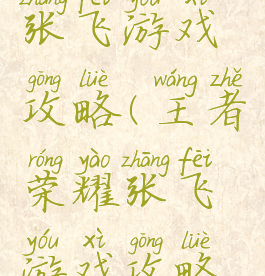 zhāng fēi yóu xì
张飞游戏
gōng lüè wáng zhě
攻略(王者
róng yào zhāng fēi
荣耀张飞
yóu xì gōng lüè
游戏攻略